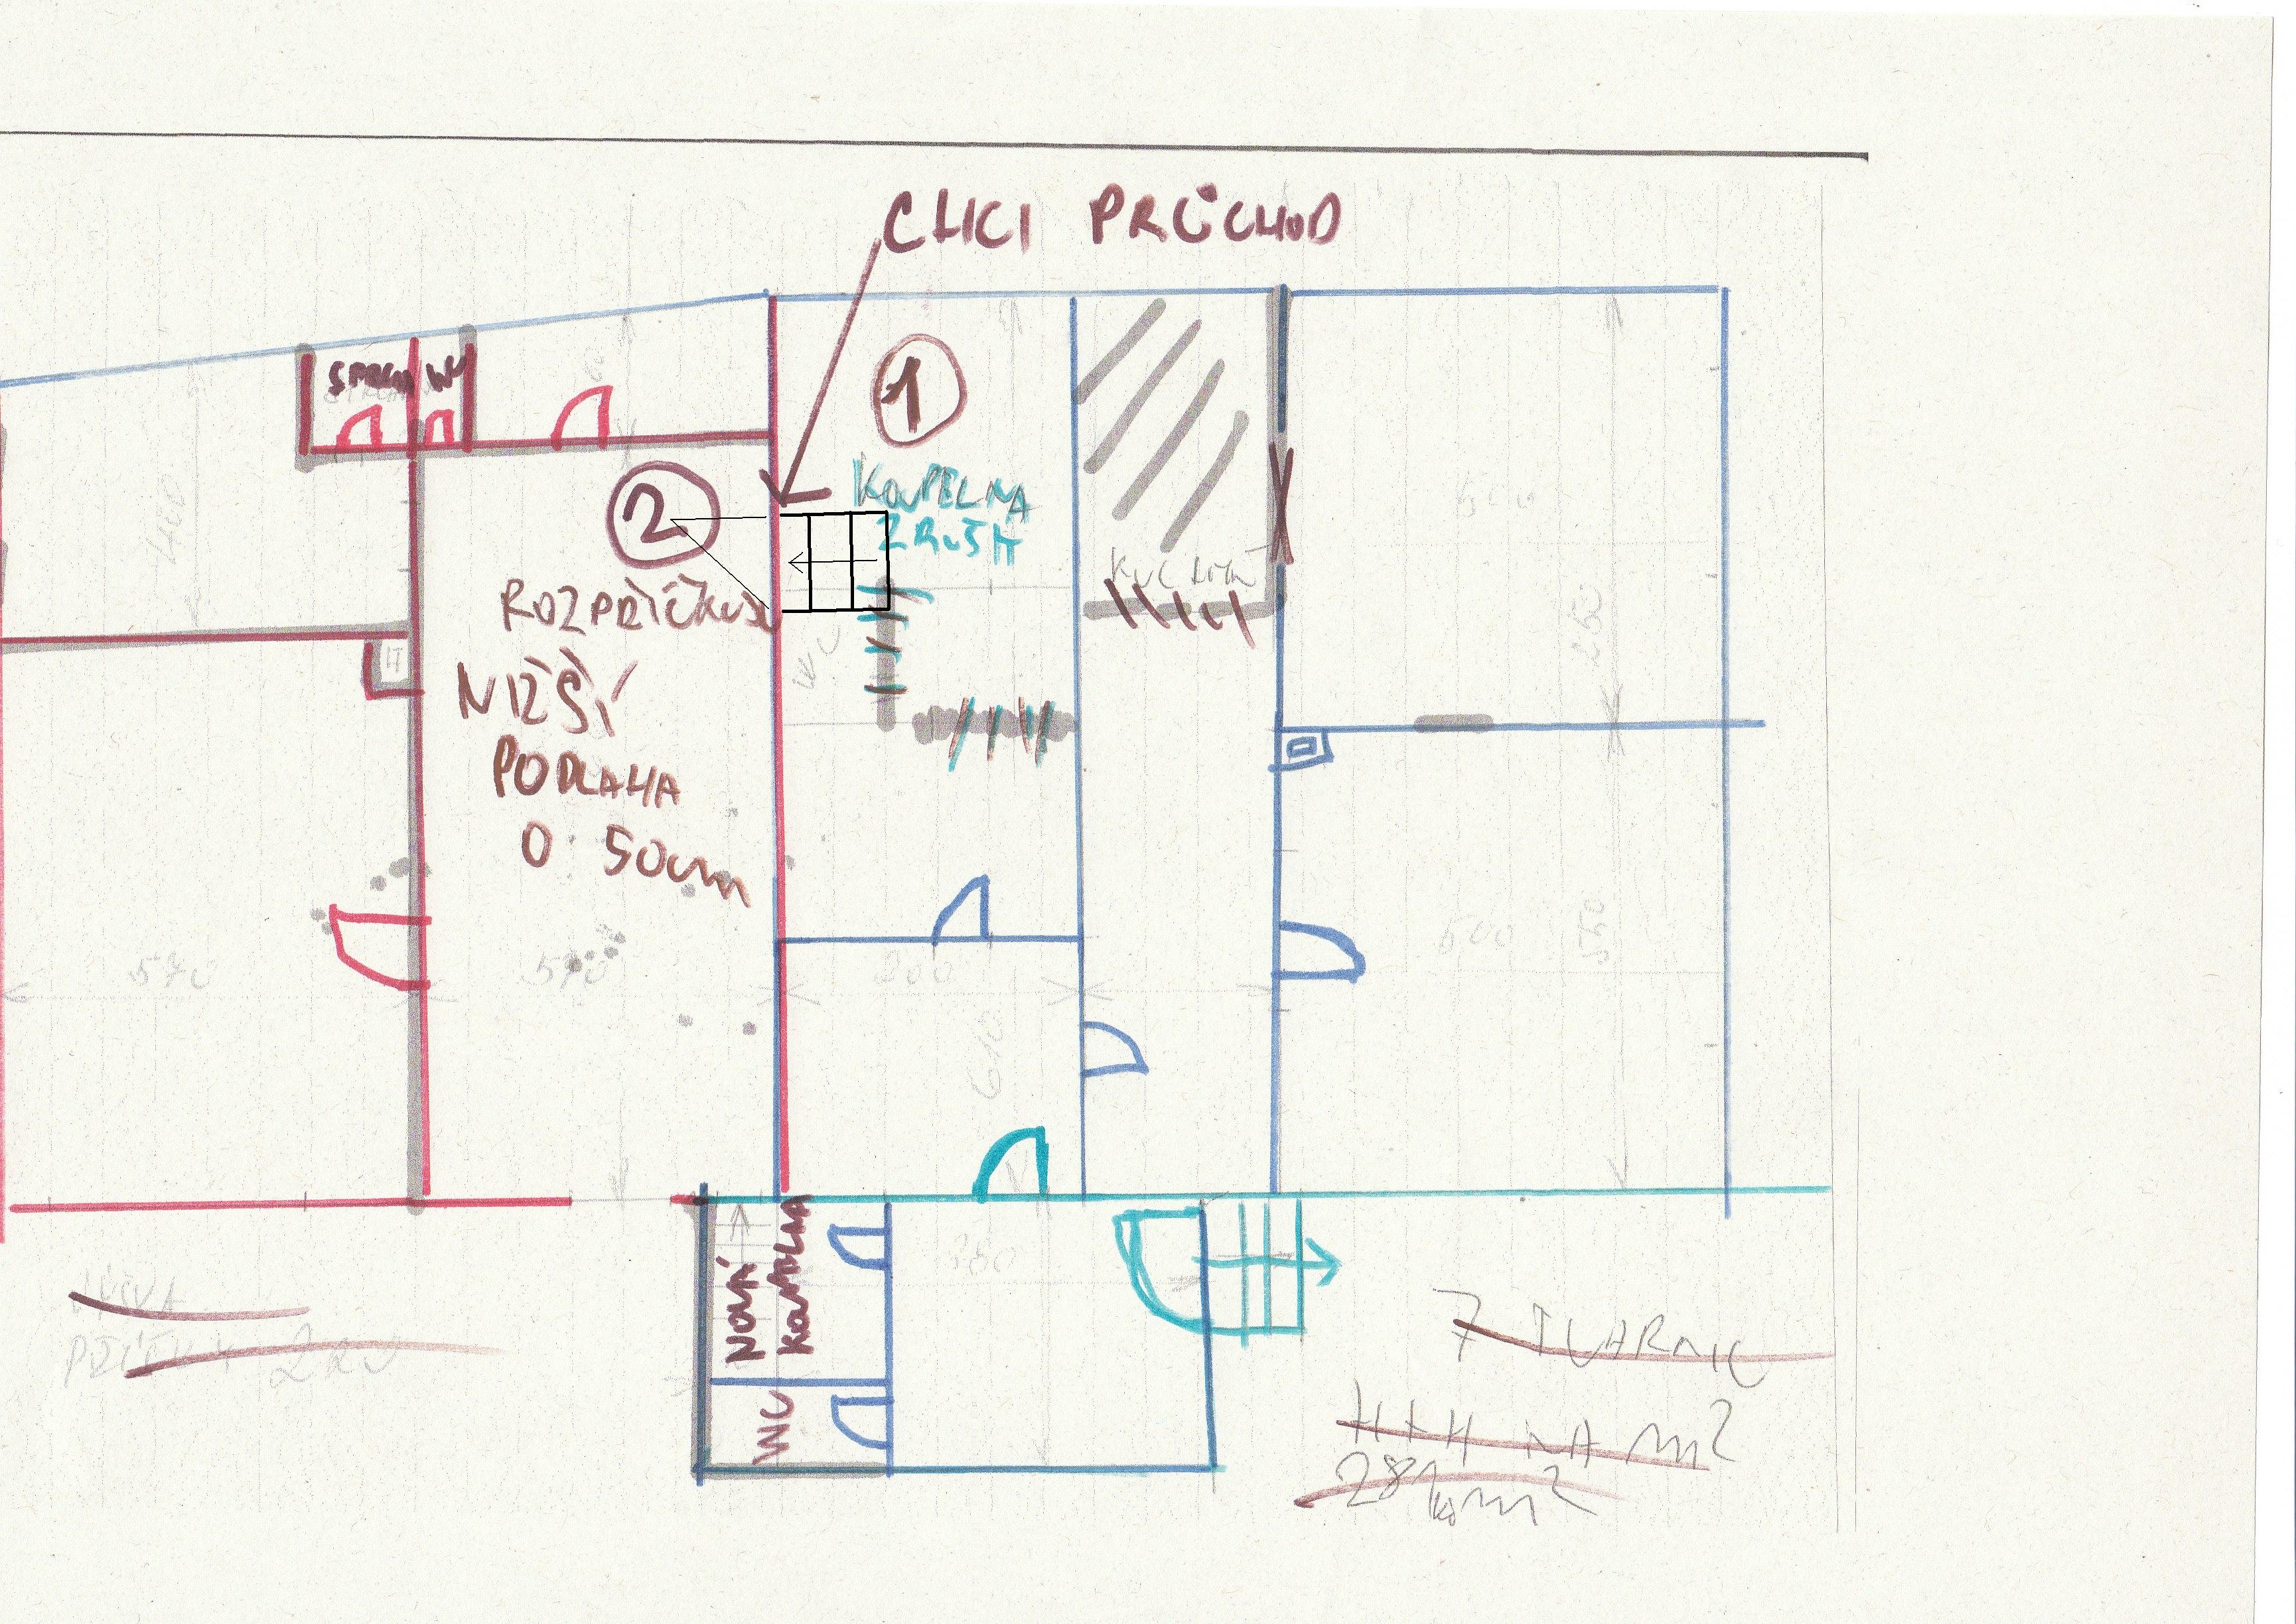 CHCI PRŮCHOD
SPRCHA WC
1
KOUPELNA
ZRUŠIT
2
ROZPŘÍČKUJU
NIŽŠÍ
PODLAHA
O 50cm
KUCHYŇ
WC
400
250
550
600
570
570
300
610
380
NOVÁ
KOUPELNA
WC
PŘÍČKY
7 TVÁRNIC
H+H NA m2
28